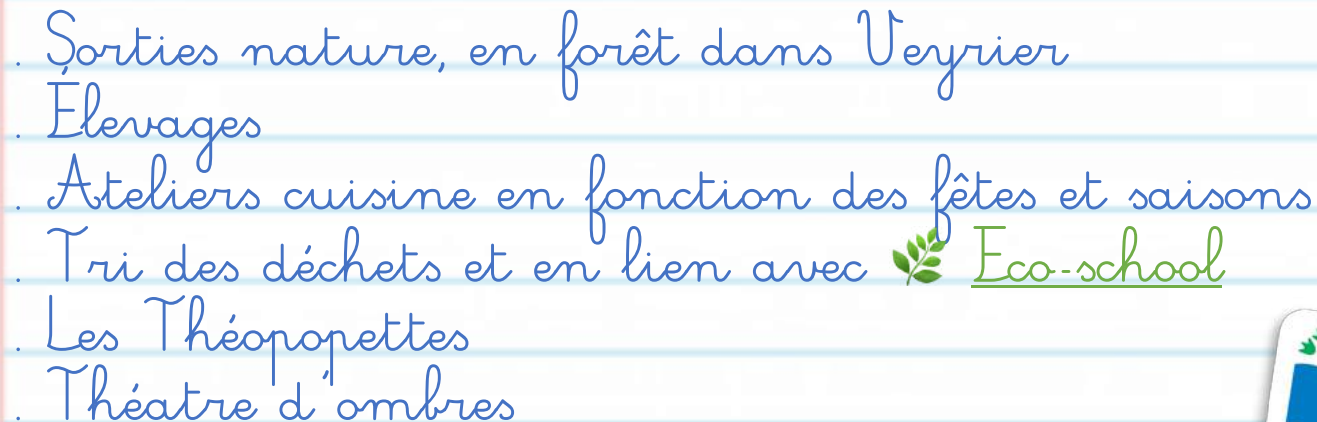 . Sorties nature, en forêt dans Veyrier
. Élevages
. Ateliers cuisine en fonction des fêtes et saisons
. Tri des déchets et en lien avec 🌿 Eco-school
. Les Théopopettes
. Théatre d'ombres